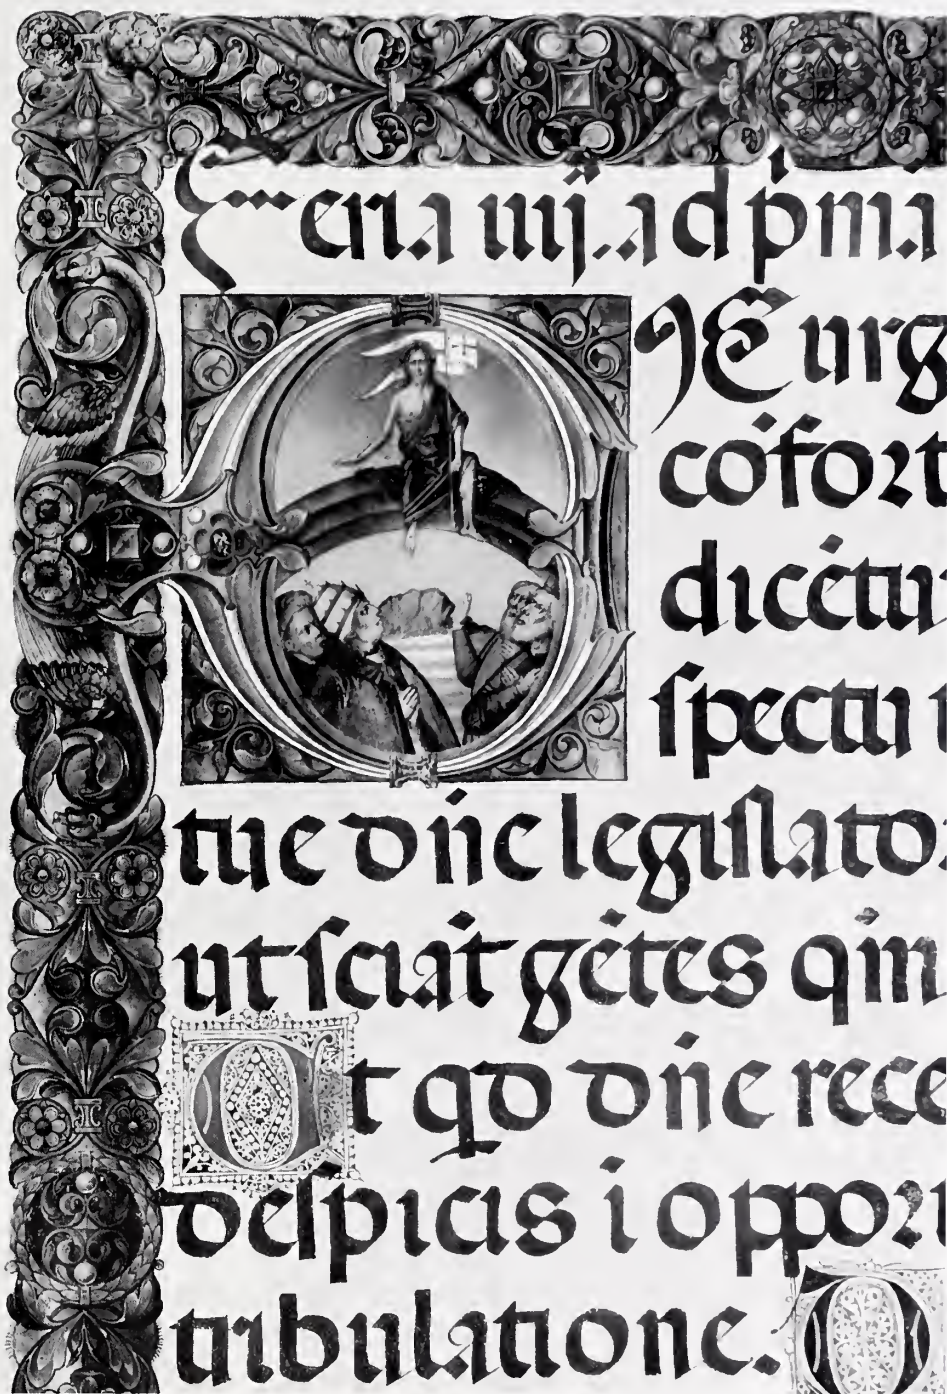 Feria iiij. ad p̄ma
EXurg
cōfort
dicētu
ſpectu
tue dn̄e legiſlato
ut ſciāt gētes qm̄
Ut qd dn̄e rece
deſpicis ī oppor
tribulatione.